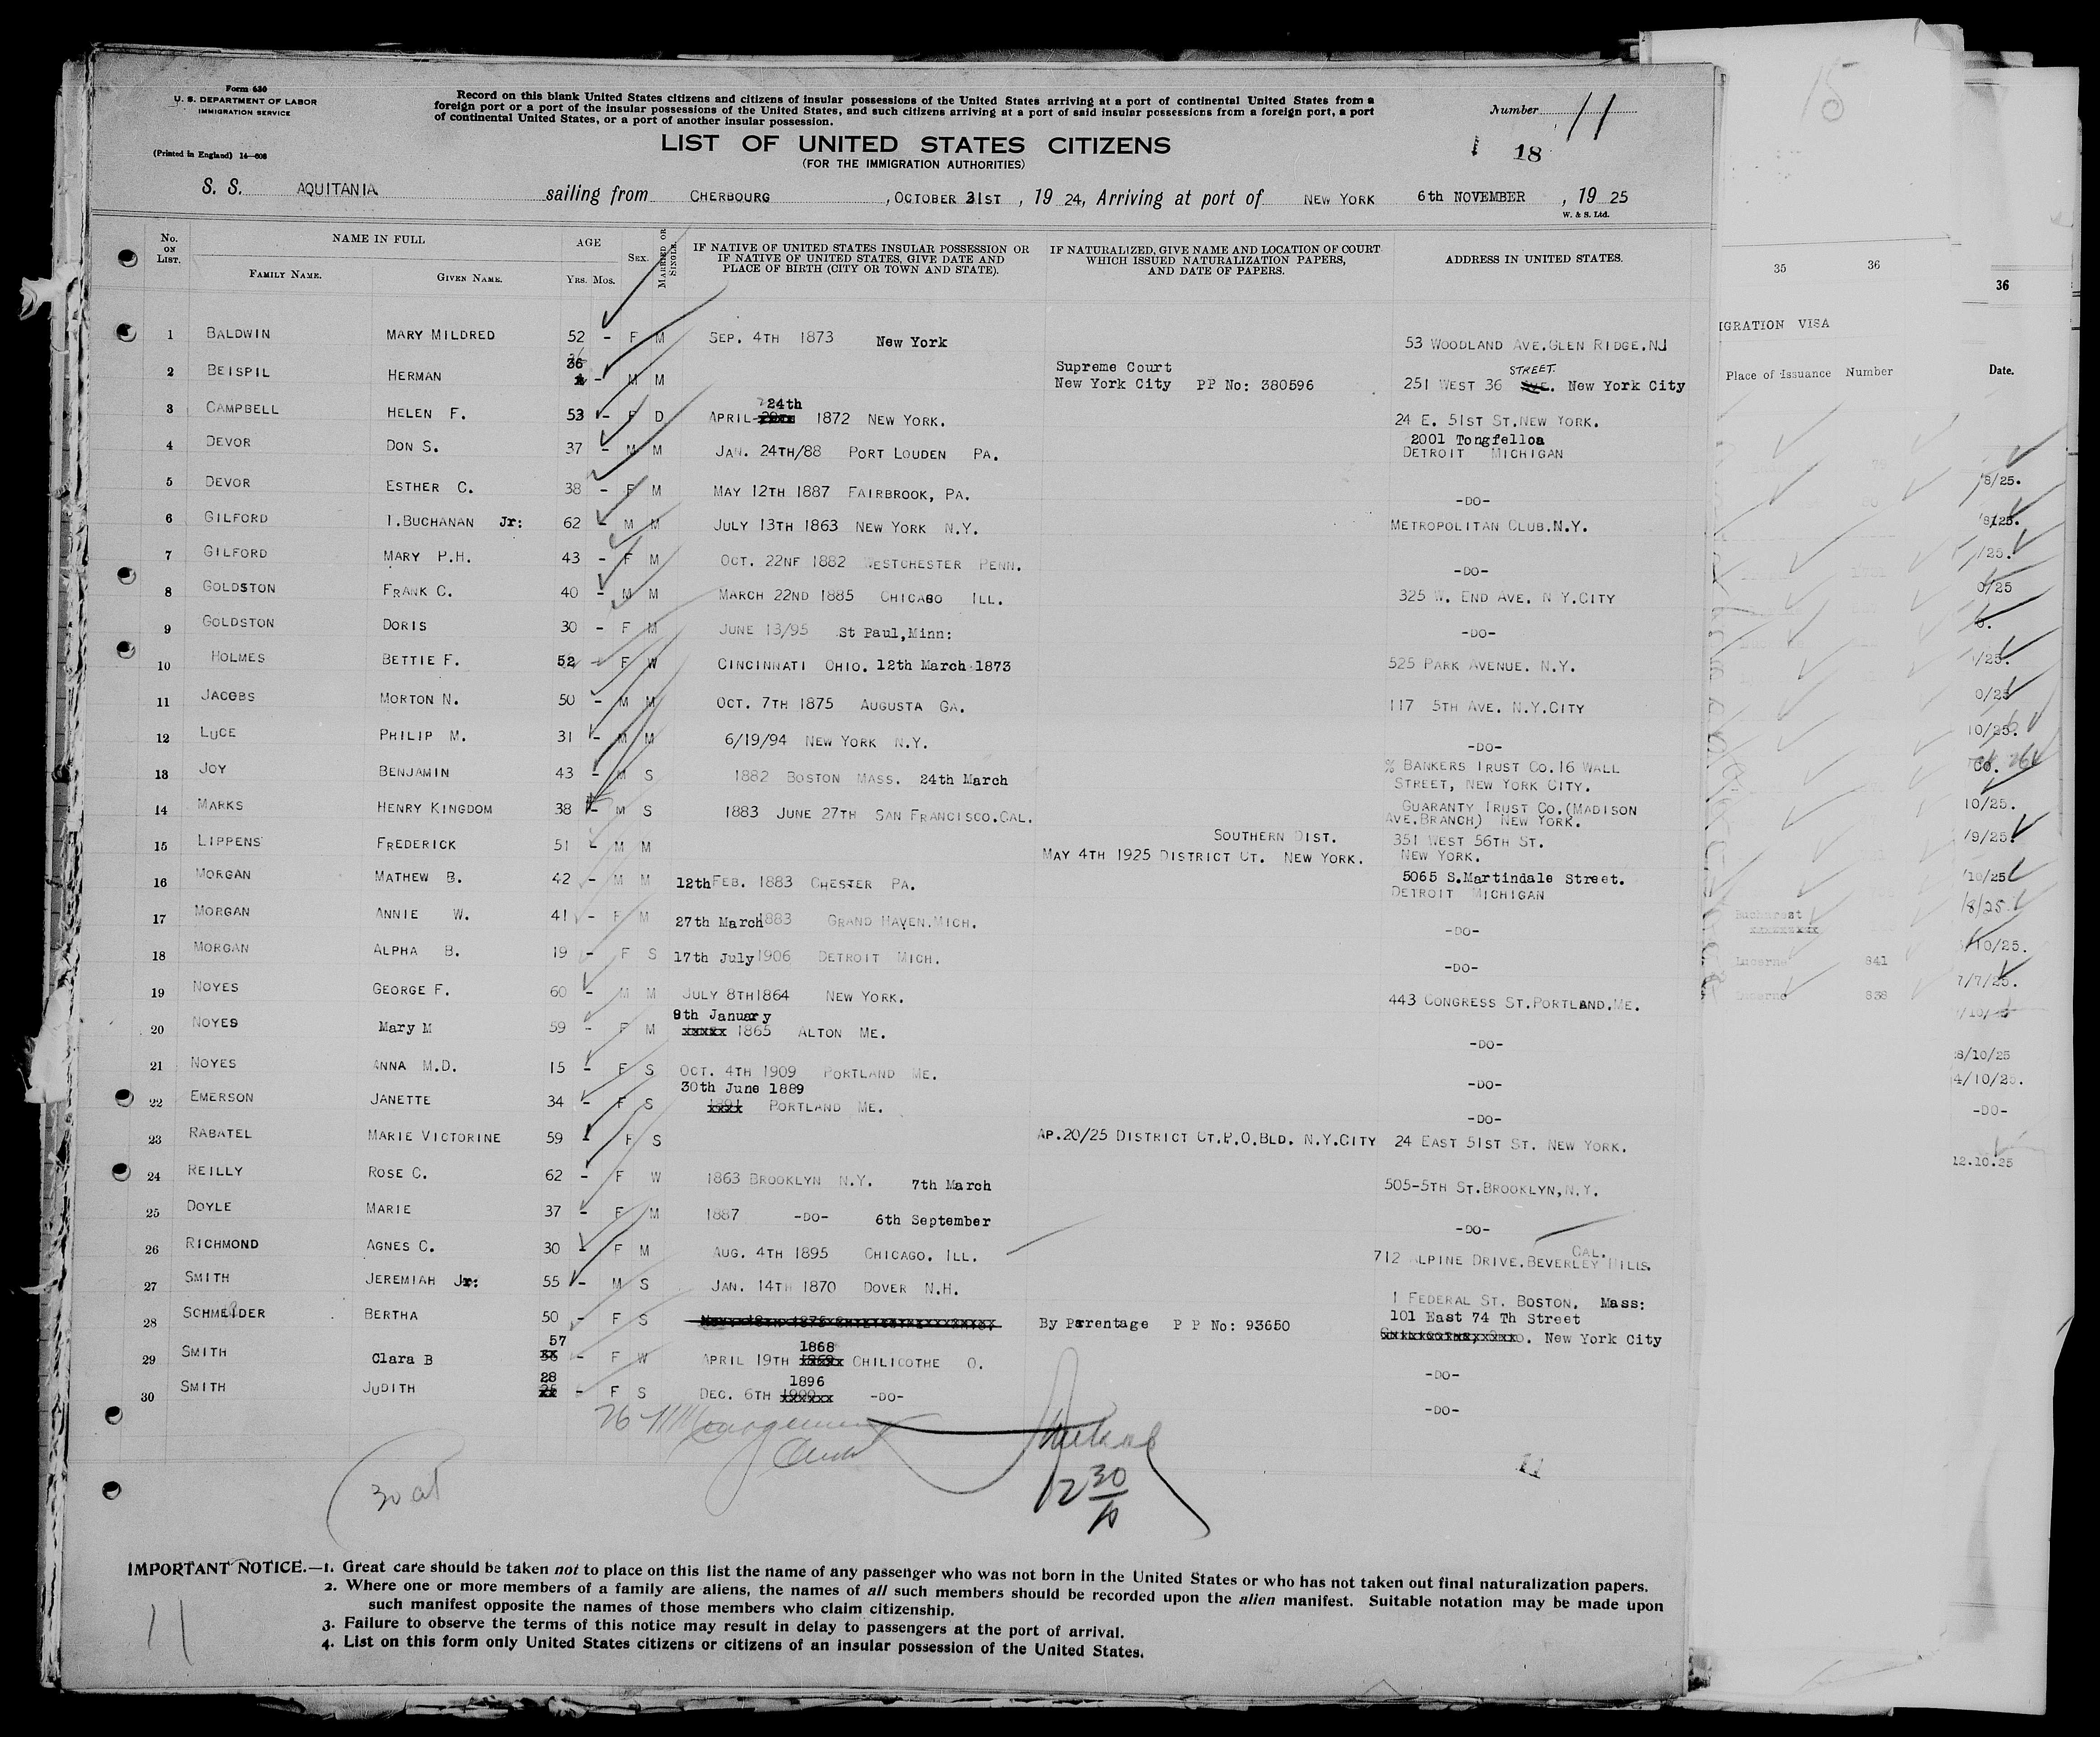 Form 630
U. S. DEPARTMENT OF LABOR
IMMIGRATION SERVICE
(Printed in England) 14—608
Record on this blank United States citizens and citizens of insular possessions of the United States arriving at a port of continental United States from a
foreign port or a port of the insular possessions of the United States, and such citizens arriving at a port of said insular possessions from a foreign port, a port
of continental United States, or a port of another insular possession.
Number 11
LIST OF UNITED STATES CITIZENS
(FOR THE IMMIGRATION AUTHORITIES)
18
S. S. AQUITANIA sailing from CHERBOURG , OCTOBER 31ST , 19 24, Arriving at port of NEW YORK 6th NOVEMBER , 19 25
W. & S. Ltd.
No. ON LIST. NAME IN FULL FAMILY NAME. GIVEN NAME. AGE YRS. MOS. SEX. MARRIED OR SINGLE. IF NATIVE OF UNITED STATES INSULAR POSSESSION OR IF NATIVE OF UNITED STATES, GIVE DATE AND PLACE OF BIRTH (CITY OR TOWN AND STATE). IF NATURALIZED, GIVE NAME AND LOCATION OF COURT WHICH ISSUED NATURALIZATION PAPERS, AND DATE OF PAPERS. ADDRESS IN UNITED STATES.
1 BALDWIN MARY MILDRED 52 - F M SEP. 4TH 1873 New York 53 WOODLAND AVE.GLEN RIDGE.NJ
2 BEISPIL HERMAN 36 - M M Supreme Court New York City PP No: 380596 251 WEST 36 STREET. New York City
3 CAMPBELL HELEN F. 53 - F D APRIL 24th 1872 NEW YORK. 24 E. 51ST ST.NEW YORK.
4 DEVOR DON S. 37 - M M JAN. 24TH/88 PORT LOUDEN PA. 2001 Tongfelloa DETROIT MICHIGAN
5 DEVOR ESTHER C. 38 - F M MAY 12TH 1887 FAIRBROOK, PA. -DO-
6 GILFORD T.BUCHANAN Jr: 62 - M M JULY 13TH 1863 NEW YORK N.Y. METROPOLITAN CLUB.N.Y.
7 GILFORD MARY P.H. 43 - F M OCT. 22NF 1882 WESTCHESTER PENN. -DO-
8 GOLDSTON FRANK C. 40 - M M MARCH 22ND 1885 CHICAGO ILL. 325 W. END AVE. N Y.CITY
9 GOLDSTON DORIS 30 - F M JUNE 13/95 St Paul,Minn: -DO-
10 HOLMES BETTIE F. 52 - F W CINCINNATI OHIO. 12th March 1873 525 PARK AVENUE. N.Y.
11 JACOBS MORTON N. 50 - M M OCT. 7TH 1875 AUGUSTA GA. 117 5TH AVE. N.Y.CITY
12 LUCE PHILIP M. 31 - M M 6/19/94 NEW YORK N.Y. -DO-
13 JOY BENJAMIN 43 - M S 1882 BOSTON MASS. 24th March % BANKERS TRUST CO.16 WALL STREET, NEW YORK CITY.
14 MARKS HENRY KINGDOM 38 - M S 1883 JUNE 27TH SAN FRANCISCO.CAL. GUARANTY TRUST CO.(MADISON AVE.BRANCH) NEW YORK.
15 LIPPENS FREDERICK 51 - M M SOUTHERN DIST. MAY 4TH 1925 DISTRICT CT. NEW YORK. 351 WEST 56TH ST. NEW YORK.
16 MORGAN MATHEW B. 42 - M M 12th FEB. 1883 CHESTER PA. 5065 S.Martindale Street. DETROIT MICHIGAN
17 MORGAN ANNIE W. 41 - F M 27th March 1883 GRAND HAVEN.MICH. -DO-
18 MORGAN ALPHA B. 19 - F S 17th July 1906 DETROIT MICH. -DO-
19 NOYES GEORGE F. 60 - M M JULY 8TH 1864 NEW YORK. 443 CONGRESS ST.PORTLAND.ME.
20 NOYES Mary M 59 - F M 8th January 1865 ALTON ME. -DO-
21 NOYES ANNA M.D. 15 - F S OCT. 4TH 1909 PORTLAND ME. -DO-
22 EMERSON JANETTE 34 - F S 30th June 1889 PORTLAND ME. -DO-
23 RABATEL MARIE VICTORINE 59 - F S AP.20/25 DISTRICT CT.P.O.BLD. N.Y.CITY 24 EAST 51ST ST. NEW YORK.
24 REILLY ROSE C. 62 - F W 1863 BROOKLYN N.Y. 7th March 505-5TH ST.BROOKLYN,N.Y.
25 DOYLE MARIE 37 - F M 1887 -DO- 6th September -DO-
26 RICHMOND AGNES C. 30 - F M AUG. 4TH 1895 CHICAGO. ILL. 712 ALPINE DRIVE.BEVERLEY HILLS. CAL.
27 SMITH JEREMIAH Jr: 55 - M S JAN. 14TH 1870 DOVER N.H. 1 FEDERAL ST. BOSTON. Mass:
28 SCHMEIDER BERTHA 50 - F S By Parentage P P No: 93650 101 East 74 Th Street New York City
29 SMITH Clara B 57 - F W APRIL 19TH 1868 CHILICOTHE O. -DO-
30 SMITH JUDITH 28 - F S DEC. 6TH 1896 -DO- -DO-
12 30/10
11
IMPORTANT NOTICE.—1. Great care should be taken not to place on this list the name of any passenger who was not born in the United States or who has not taken out final naturalization papers.
2. Where one or more members of a family are aliens, the names of all such members should be recorded upon the alien manifest. Suitable notation may be made upon
such manifest opposite the names of those members who claim citizenship.
3. Failure to observe the terms of this notice may result in delay to passengers at the port of arrival.
4. List on this form only United States citizens or citizens of an insular possession of the United States.
11
15
35 36
IGRATION VISA
Place of Issuance Number
Bucharest
Lucerne 841
Lucerne 838
36
Date.
8/25.
/25.
0/25
/25.
0/25
10/25.
10/25.
/9/25.
/10/25
/8/25
/10/25.
7/7/25.
8/10/25
4/10/25.
-DO-
12.10.25